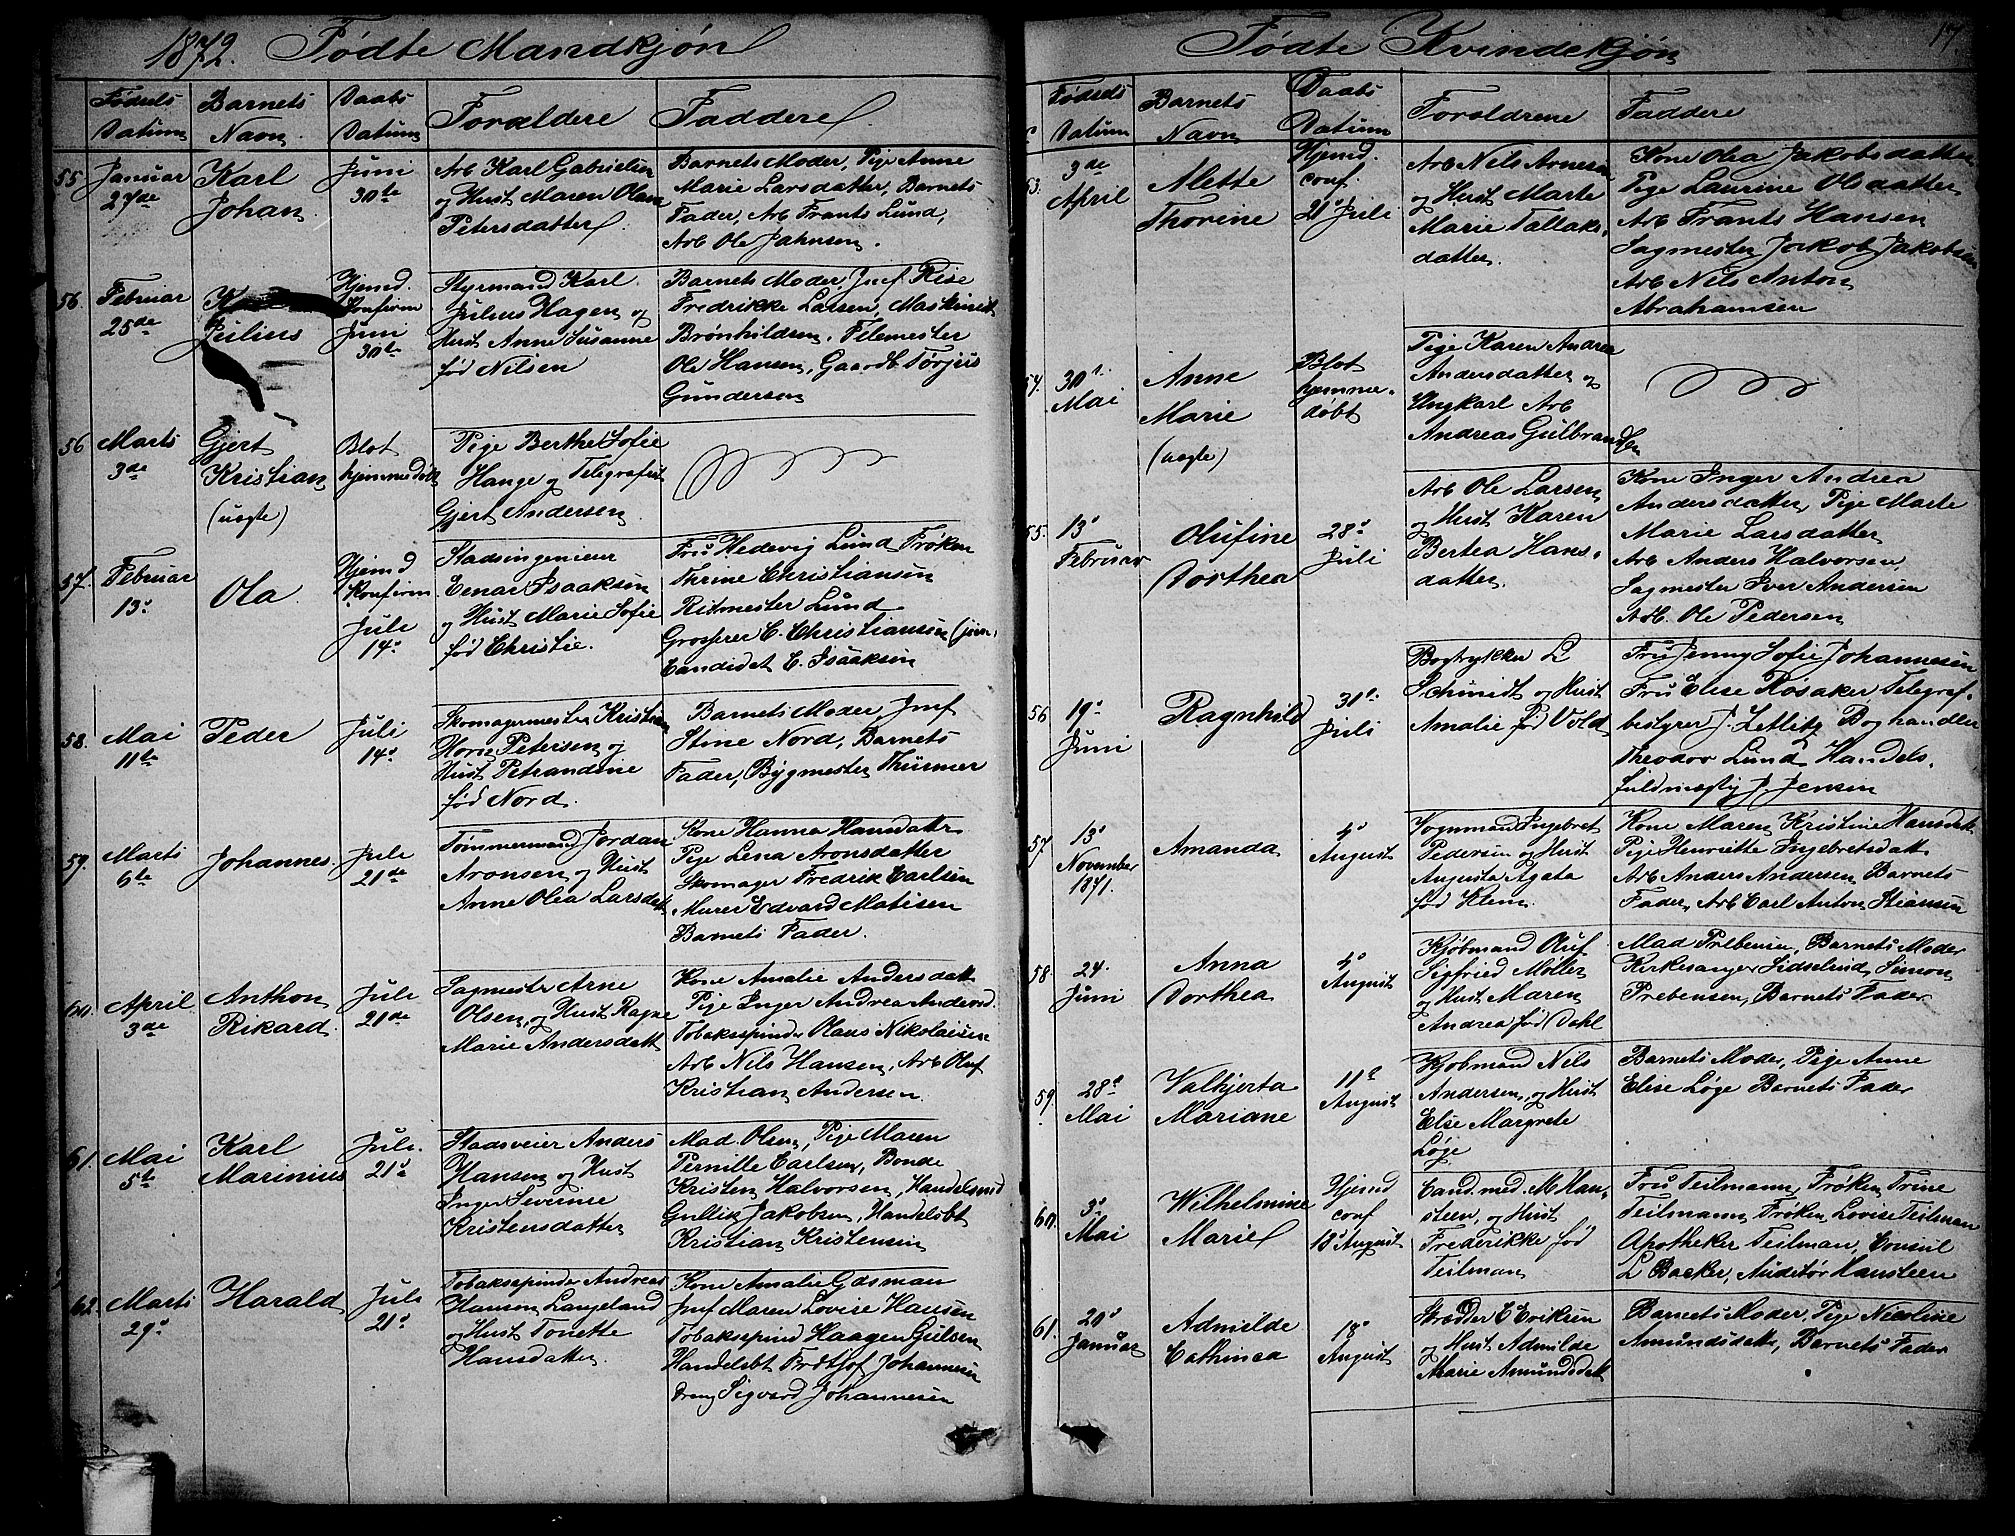 1872. Fødte Mandkjøn
Fødsels Datum
Barnets Navn
Daabs Datum
Forældere
Faddere
55 Januar 27de
Karl Johan
Juni 30te
Arb Karl Gabrielsen
og Hust Maren Olava
Petersdatter.
Barnets Moder, Pige Anne
Marie Larsdatter, Barnets
Fader, Arb Frants Lund,
Arb Ole Jahnsen.
56. Februar 25de
Julius
Hjemd. Konfirm Juni 30te
Styrmand Karl
Julius Hagen og
Hust Anne Susanne
fød Nilsen
Barnets Moder, Jmf Rise
Fredrikke Larsen, Maskinist
Brønhildsen, Filemester
Ole Hansen, Gaardb. Tørjus
Gundersen
56 Marts 3de
Gjert Kristian (uægte)
Blot hjemmedøbt
Pige Berthe Sofie
Hange og Telegrafist
Gjert Andersen
57. Februar 13de
Ola
Hjemd Konfirm Juli 14de
Stadsingenieur
Eenar Isaaksen
og Hust Marie Sofie
fød Christie.
Fru Hedevig Lund Frøken
Thrine Christiansen
Ritmester Lund
Grosserer C. Christiansen (jun.
Candidat C. Isaaksen
58. Mai 11te
Peder
Juli 14de
Skomagermester Kristian
Horn Petersen og
Hust Petrandine
fød Nord.
Barnets Moder, Jmf
Stine Nord, Barnets
Fader, Bygmester Thürmer
59. Marts 6te
Johannes.
Juli 21de
Tømmermand Jordan
Aronsen og Hust
Anne Olea Larsdatt
Kone Hanna Hansdatter
Pige Lena Aronsdatter
Skomager Fredrik Carlsen
Murer Edvard Matisen
Barnets Fader.
60. April 3de
Anthon Rikard.
Juli 21de
Sagmester Arne
Olsen, og Hust Ragne
Marie Andersdatt
Kone Amalie Andersdatt
Pige Inger Andrea Andersd.
Tobakspinder Olaus Nikolaisen
Arb Nils Hansen, Arb Oluf
Kristian Andersen.
61. Mai 5te
Karl Marinius
Juli. 21de
Stadsveier Anders
Hansen og Hust
Inger Severine
Kristensdatter
Mad. Olsen, Pige Maren
Pernille Carlsen, Bonde
Kristen Halvorsen, Handelsmd
Gullik Jakobsen, Handelsbt
Kristian Kristensen
62. Marts 29de
Harald
Juli 21de
Tobakspinder Andreas
Hanson Langeland
og Hust Tonette
Hansdatter.
Kone Amalie Gasman
Jmf Maren Lovise Hansen
Tobakspind Haagen Gulsen
Handelsbt Frøtjof Johannesen
Dreng Sigvard Johannesen
Fødte Kvindekjøn
17
Fødseds Datum
Barnets Navn
Daabs Datum
Foreldrene
Faddere
3de April
Alette Thorine
Hjemd. conf. 21de Juli
Arb Nils Arnesen
og Hust Marte
Marie Tallaks-
datter.
Kone Olea Jakobsdatter
Pige Laurine Olsdatter
Arb Frants Hansen
Sagmester Jakob Jakobsen
Arb Nils Anton
Abrahamsen
54. 30te Mai
Anne Marie (uægte)
Blot hjemme-døbt
Pige Karen Andrea
Andersdatter og
Ungkarl Arb
Andreas Gulbrandsen
55. 13de Februar
Olufine Dorthea
28de Juli
Arb Ole Larsen
og Hust Karen
Bertea Hans-
datter.
Kone Inger Andrea
Andersdatter, Pige Marte
Marie Larsdatter
Arb Anders Halvorsen,
Sagmester Iver Andersen
Arb. Ole Pedersen
56 19de Juni
Ragnhild
31te Juli
Bogtrykker L
Schmidt og Hust
Amalie fød Vold
Fru Jenny Sofie Johannesen
Fru Elise Rosaker Telegraf-
bestyrer J. Zetlitz Boghandler
Theodor Lund Handels-
fuldmægtig J. Jensen
57 13de November 1871.
Amanda
4de August
Vognmand Ingebret
Pedersen og Hust
Augusta Agata
fød Klem.
Kone Maren Kristine Hansdatt.
Pige Henriette Ingebretsdatt
Arb Anders Andersen Barnets
Fader, Arb Carl Anton Stiansen
58. 24. Juni
Anna Dorthea
4de August
Kjøbmand Oluf
Sigfried Møller
og Hust Maren
Andrea fød Dahl
Mad Prebensen, Barnets Moder
Kirkesanger Lidselund, Simon
Prebensen, Barnets Fader
59. 28de Mai
Valhjerta Mariane
11te August
Kjøbmand Nils
Andersen, og Hust
Else Margrete
Løge
Barnets Moder, Pige Anne
Elise Løge Barnets Fader
60. 3de Mai
Wilhelmine Marie
Hjemd conf 18de August
Cand. med. M Han-
steen, og Hust
Frederikke fød
Teilman
Fru Teilmann, Frøken Trine
Teilmann Frøken Lovise Teilman
Apotheker Teilman, Consul
L Backer, Auditør Hansteen
61. 20de Januar
Admilde Cathinca
18de August
Strædder E Eriksen
og Hust Admilde
Marie Amundsdatt
Barnets Moder, Pige Nicoline
Amundsdatt, Barnets Fader